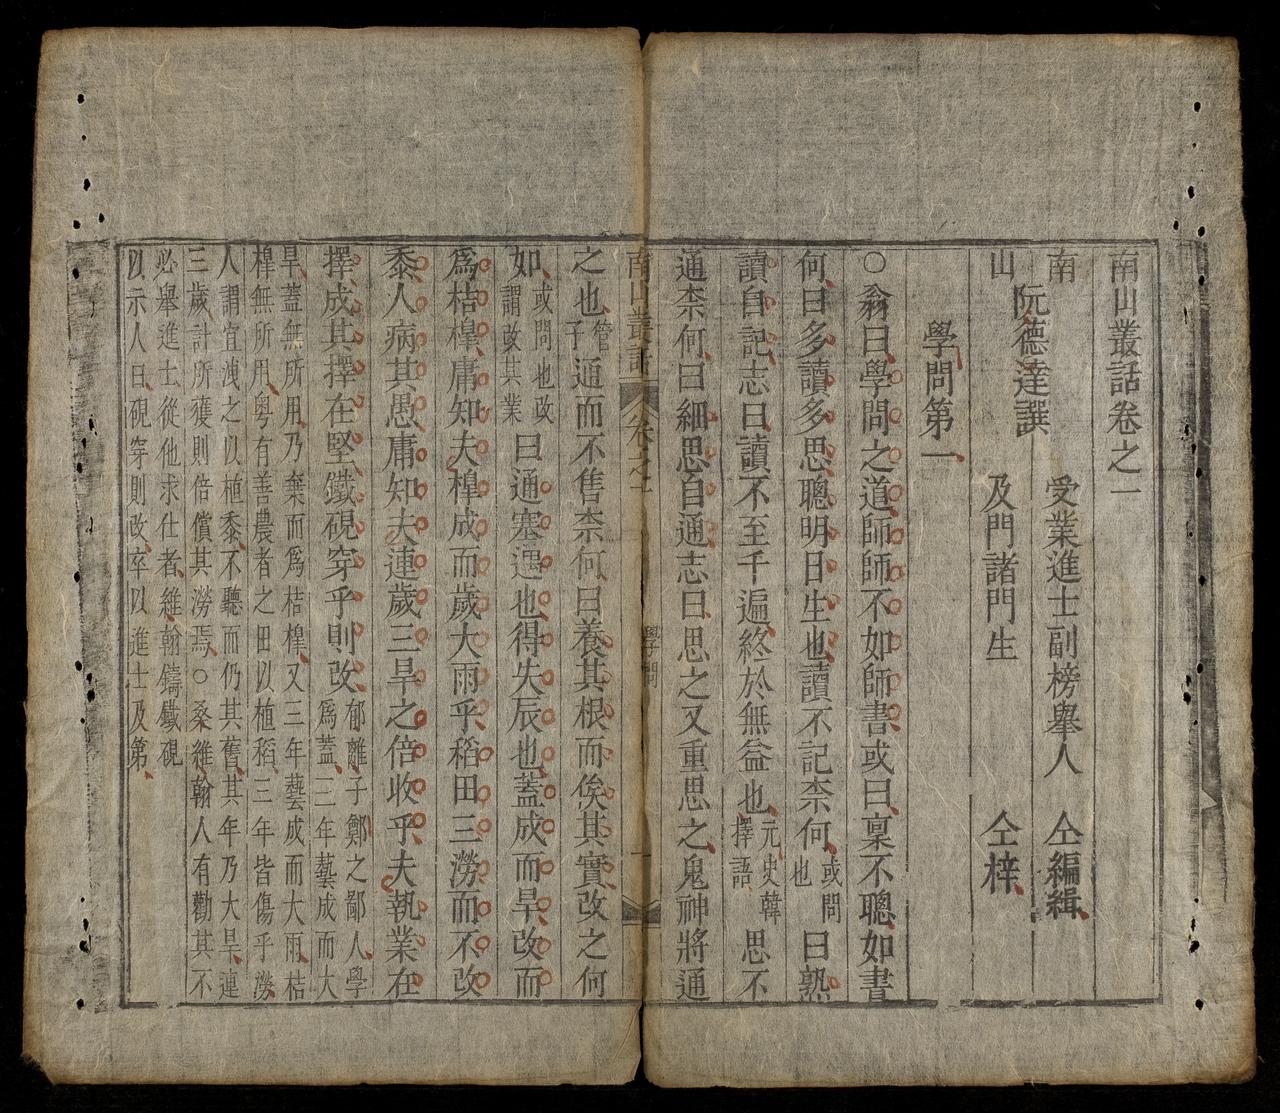 南山叢話卷之一
南　　受業進士副榜舉人　仝編緝
阮德達譔
山　　及門諸門生　　仝梓
學問第一
○翁曰學問之道師師不如師書或曰稟不聰如書
何曰多讀多思聰明日生也讀不記柰何或問也曰熟
讀自記志曰讀不至千遍終於無益也元史韓擇語思不
通柰何曰細思自通志曰思之又重思之鬼神將通
南山叢話　卷之一　學問　一
之也管子通而不售柰何曰養其根而俟其實改之何
如或問也改謂改其業曰通塞遇也得失辰也蓋成而旱改而
爲桔槹庸知夫槹成而歲大雨乎稻田三澇而不改
黍人病其愚庸知夫連歲三旱之倍收乎夫執業在
擇成其擇在堅鐵硯穿乎則改郁離子鄭之鄙人學爲蓋三年藝成而大
旱蓋無所用乃棄而爲桔槹又三年藝成而大雨桔
槹無所用粤有善農者之田以植稻三年皆傷乎澇
人謂宜洩之以植黍不聽而仍其舊其年乃大旱連
三歲計所獲則倍償其澇焉○桑維翰人有勸其不
必舉進士從他求仕者維翰鑄鐵硯
以示人曰硯穿則改卒以進士及第